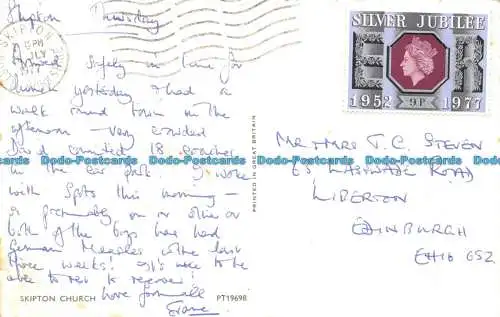 Skipton Thursday
SKIPTON
SILVER JUBILEE
E R
1952 9P 1977
Arrived safely in time for
lunch yesterday & had a
walk round town in the
afternoon – very crowded
David counted 18 coaches
in the car park. I woke
with Spots this morning –
on or other or
both of the boys have had
German Measles in the last
three weeks! It's nice to be
able to rest & recover!
Love from all
MR & MRS T. C. STEVEN
63 LASSWADE ROAD
LIBERTON
EDINBURGH
EH16 6SZ
PRINTED IN GREAT BRITAIN
SKIPTON CHURCH PT19698
Dodo-Postcards Dodo-Postcards Dodo-Postcards Dodo-Postcards